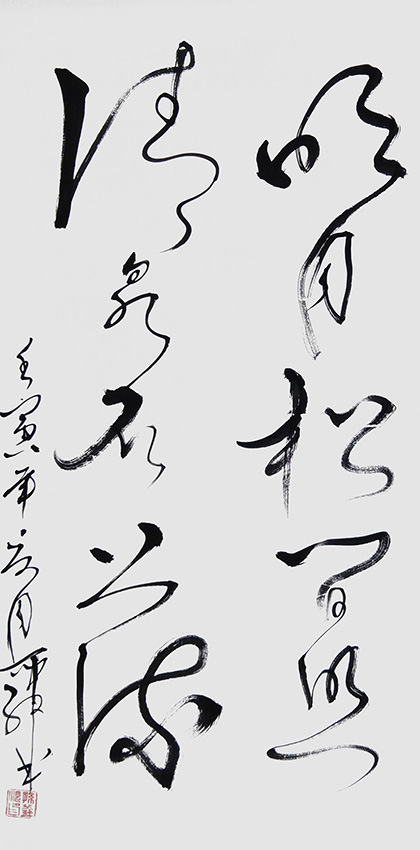 明月松间照
清泉石上流
壬寅年夏月书